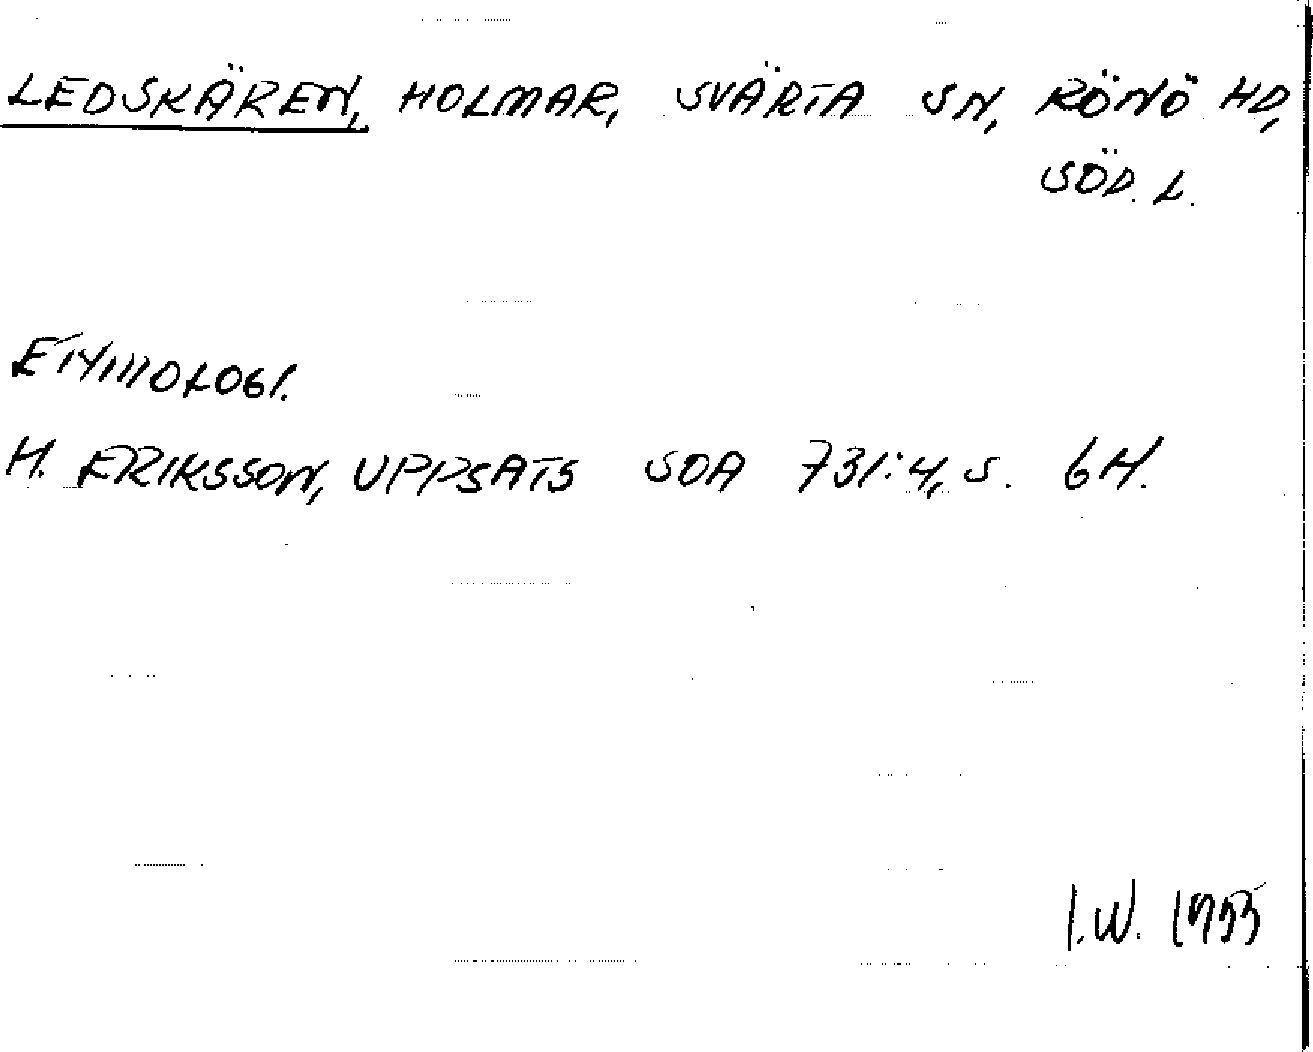 LEDSKÄREN, HOLMAR, SVÄRTA SN, RÖNÖ HD,
SÖD. L.
ETYMOLOGI.
H. ERIKSSON, UPPSATS SOA 731:4, S. 6H.
I.W. 1955